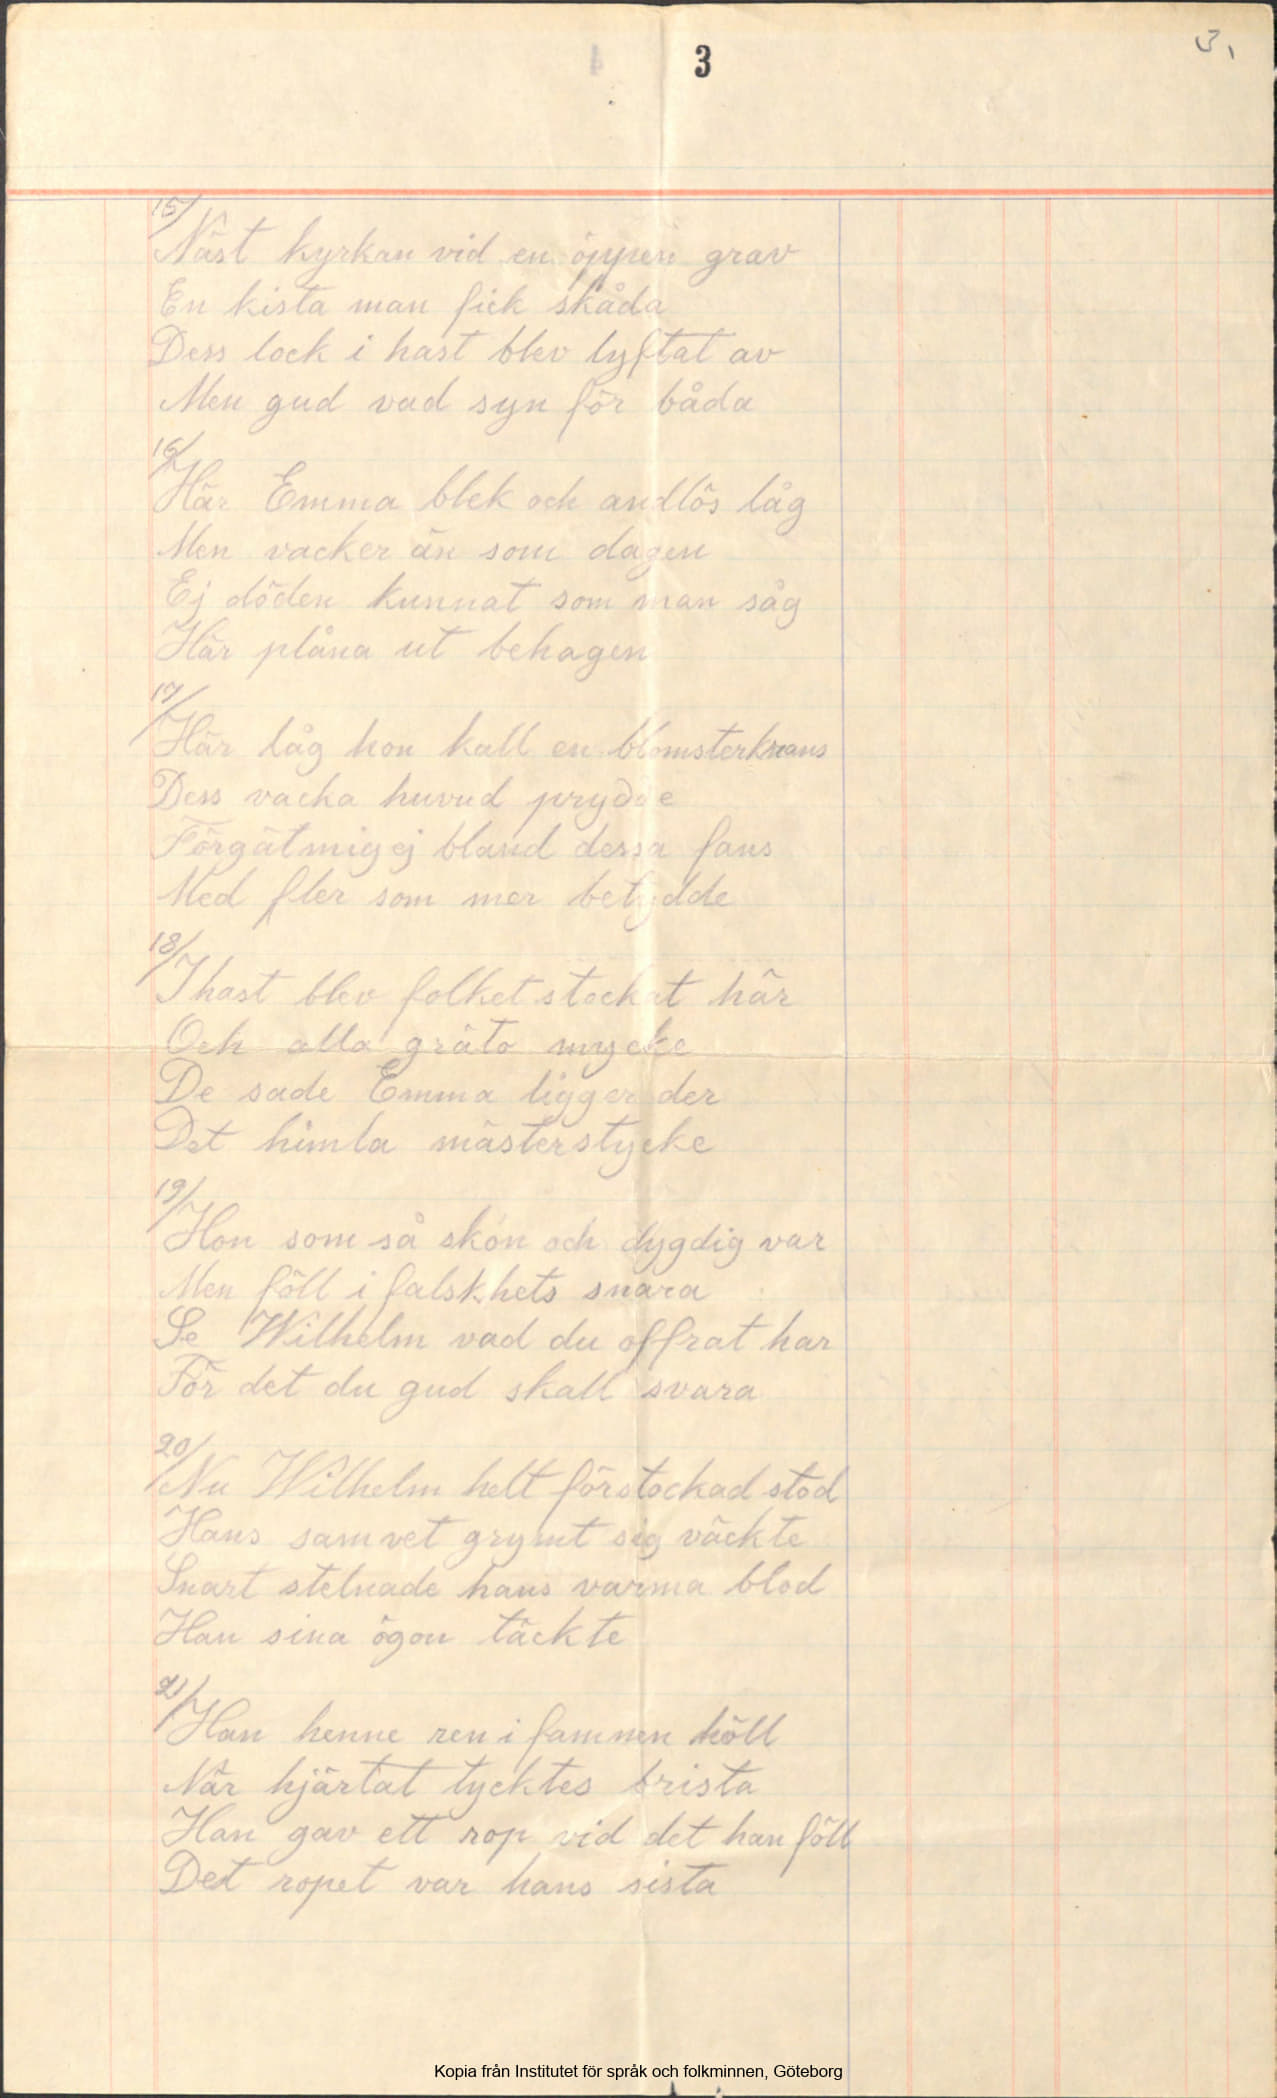 3
3.
15/
Näst kyrkan vid en öppen grav
En kista man fick skåda
Dess lock i hast blev lyftat av
Men gud vad syn för båda
16/
Här Emma blek och andlös låg
Men vacker än som dagen
Ej döden kunnat som man såg
Här plåna ut behagen
17/
Här låg hon kall en blomsterkrans
Dess vacka huvud prydde
Förgätmigej bland dessa fans
Med fler som mer betydde
18/
I hast blev folket stockat här
Och alla gräto mycke
De sade Emma ligger der
Det himla mästerstycke
19/
Hon som så skön och dygdig var
Men föll i falskhets snara
Se Wilhelm vad du offrat har
För det du gud skall svara
20/
Nu Wilhelm helt förstockad stod
Hans samvet grymt sig väckte
Snart stelnade hans varma blod
Han sina ögon täckte
21/
Han henne ren i famnen höll
När hjärtat tycktes brista
Han gav ett rop vid det han föll
Det ropet var hans sista
Kopia från Institutet för språk och folkminnen, Göteborg